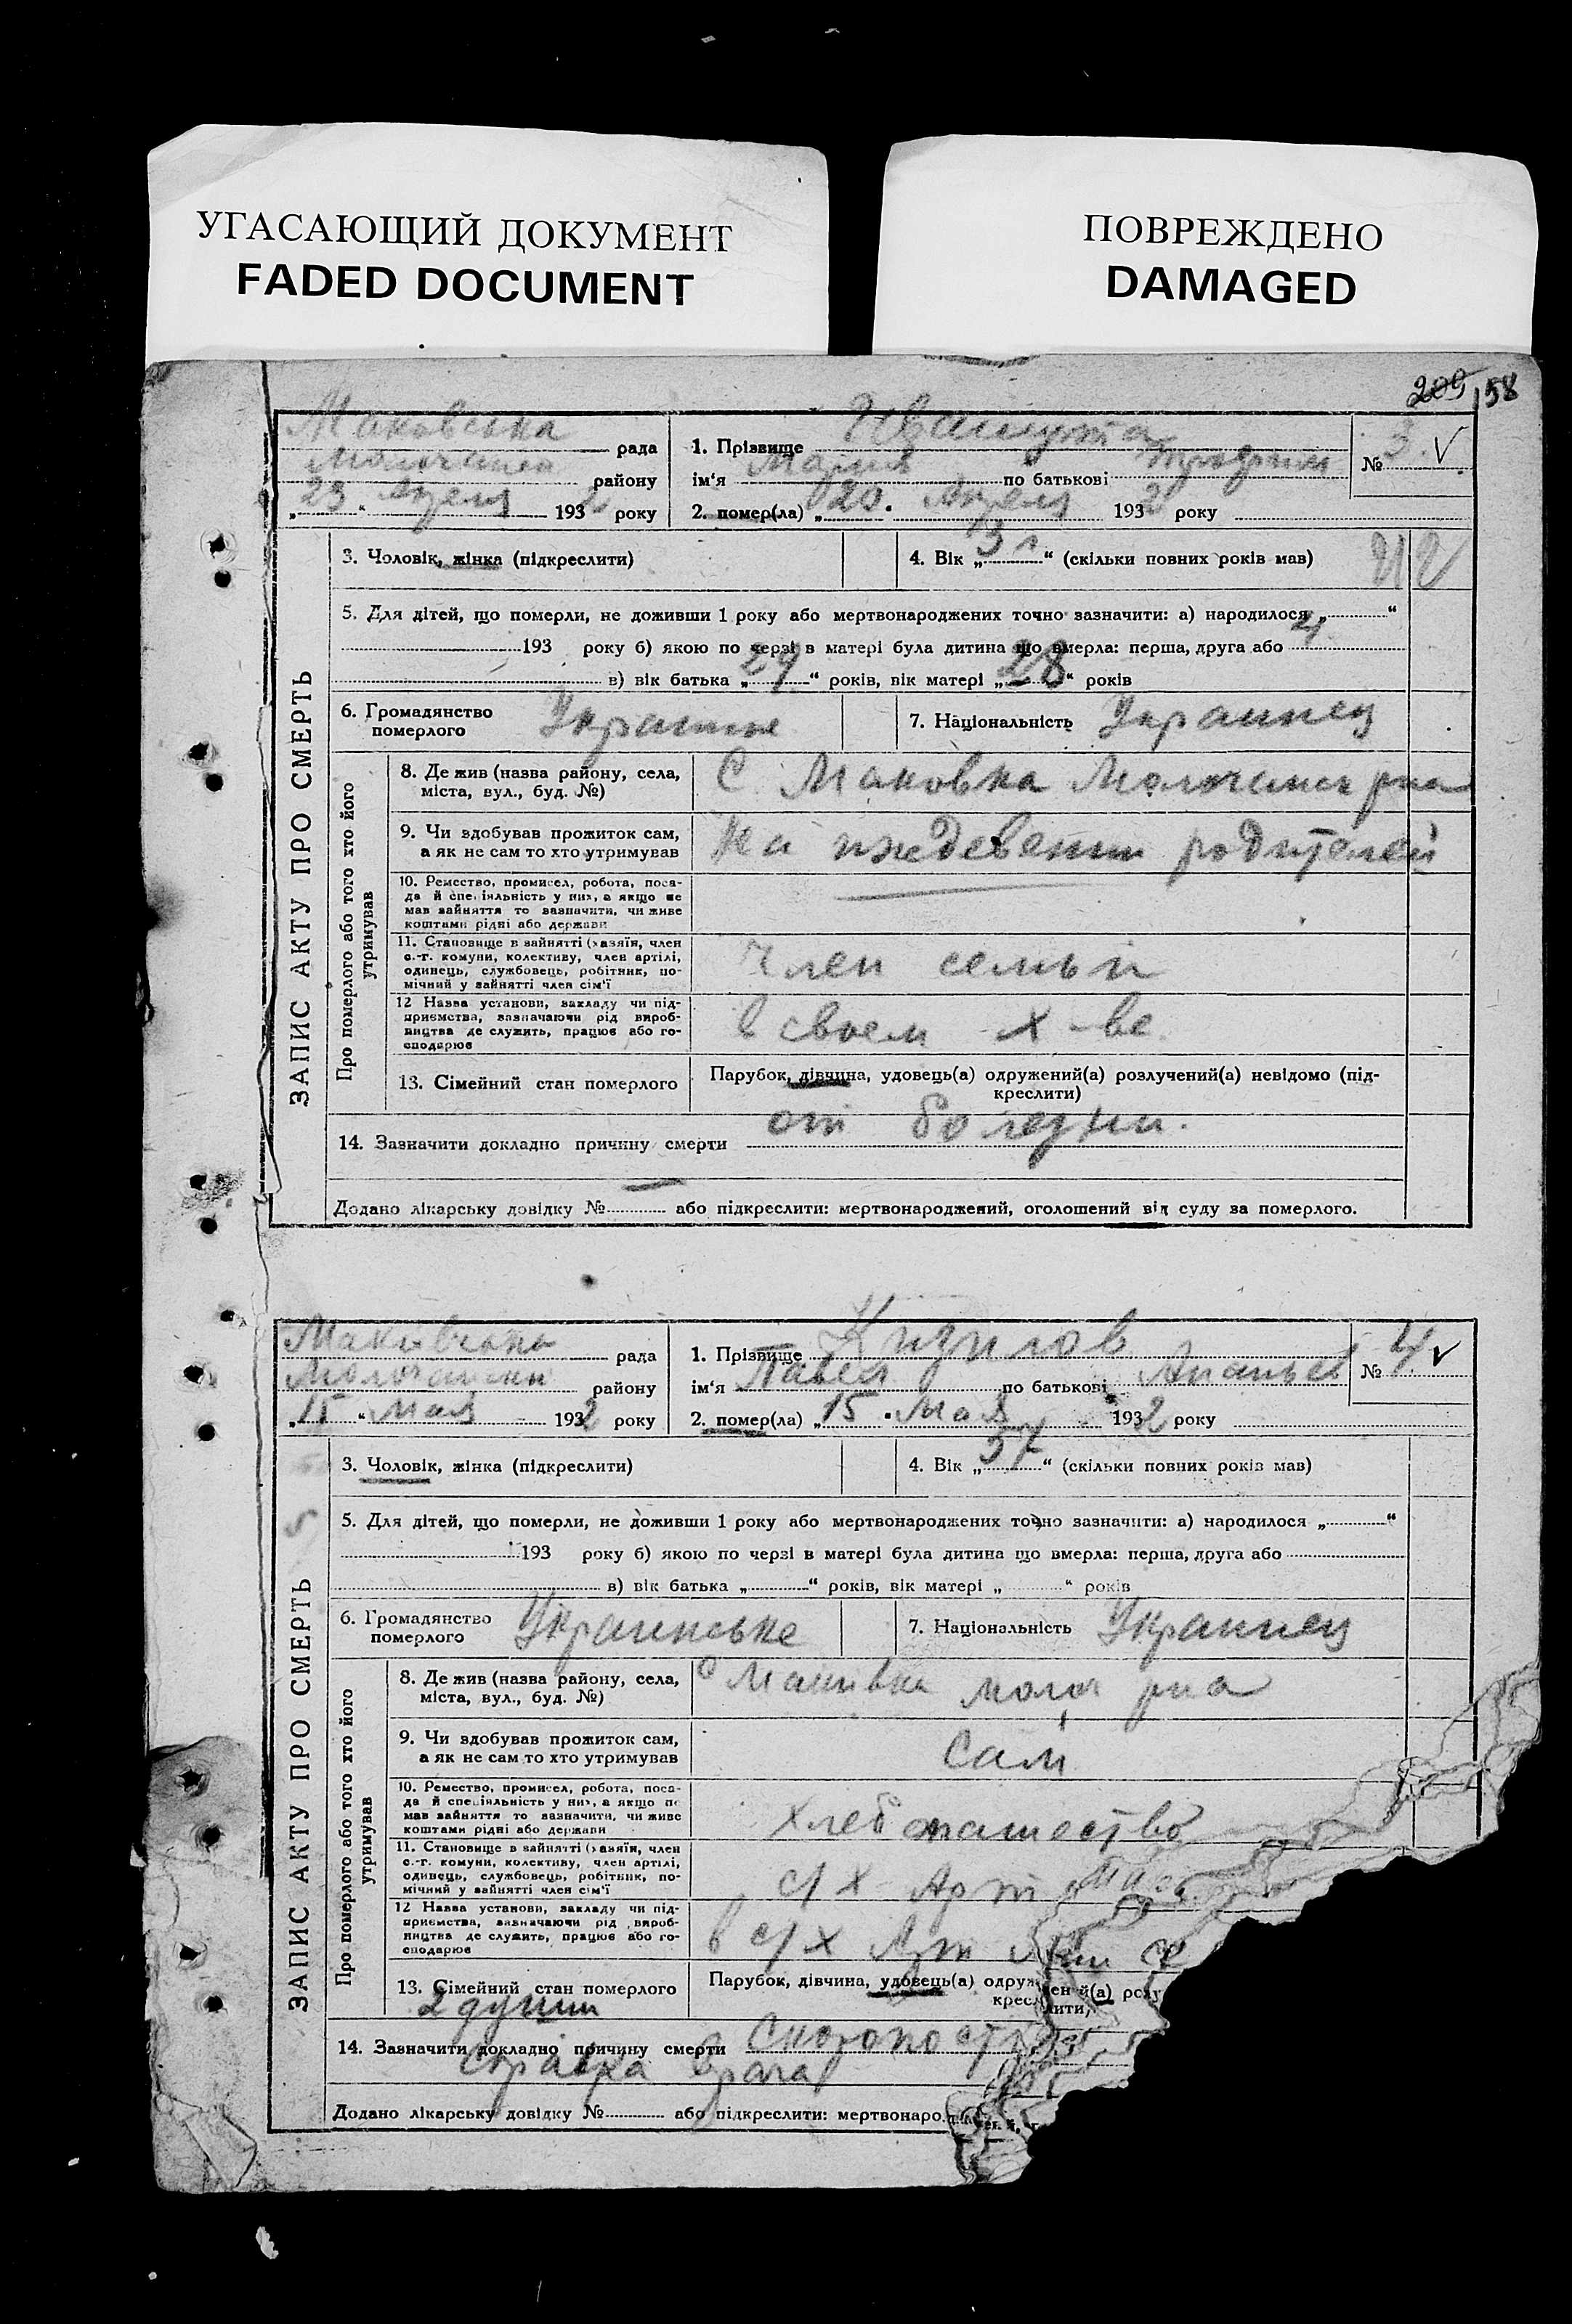 УГАСАЮЩИЙ ДОКУМЕНТ
FADED DOCUMENT
ПОВРЕЖДЕНО
DAMAGED
209 158
Маковська рада
району
„23“ Апреля 1932 року
1. Прізвище Ивашута
ім'я Мария по батькові
2. помер(ла) „20“ Апреля 1932 року
№ 3. V
ЗАПИС АКТУ ПРО СМЕРТЬ
3. Чоловік, жінка (підкреслити)
4. Вік „3 л“ (скільки повних років мав)
5. Для дітей, що померли, не доживши 1 року або мертвонароджених точно зазначити: а) народилося „ “
193 року б) якою по черзі в матері була дитина що вмерла: перша, друга або 4
в) вік батька „29“ років, вік матері „28“ років
6. Громадянство померлого
7. Національність Украинец
Про померлого або того хто його утримував
8. Де жив (назва району, села,
міста, вул., буд. №)
С. Маковка рна
9. Чи вдобував прожиток сам,
а як не сам то хто утримував
На иждевении родителей
10. Ремество, промисел, робота, поса-
да й спеціяльність у них, а якщо не
мав зайняття то зазначити, чи живе
коштами рідні або держави
11. Становище в зайнятті (хазяїн, член
с.-г. комуни, колективу, член артілі,
одинець, службовець, робітник, по-
мічний у зайнятті член сім'ї
Член семьи
12 Назва установи, закладу чи під-
приємства, зазначаючи рід вироб-
ництва де служить, працює або го-
сподарює
в своем х-ве.
13. Сімейний стан померлого
Парубок, дівчина, удовець(а) одружений(а) розлучений(а) невідомо (під-
креслити)
14. Зазначити докладно причину смерти от болезни.
Додано лікарську довідку № або підкреслити: мертвонароджений, оголошений від суду за померлого.
рада
району
„15“ Мая 1932 року
1. Прізвище
ім'я Павел по батькові Ананьев
2. помер(ла) „15“ Мая 1932 року
№ 4. V
ЗАПИС АКТУ ПРО СМЕРТЬ
3. Чоловік, жінка (підкреслити)
4. Вік „57“ (скільки повних років мав)
5. Для дітей, що померли, не доживши 1 року або мертвонароджених точно зазначити: а) народилося „ “
193 року б) якою по черзі в матері була дитина що вмерла: перша, друга або
в) вік батька „ “ років, вік матері „ “ років
6. Громадянство померлого Украинське
7. Національність Украинец
Про померлого або того хто його утримував
8. Де жив (назва району, села,
міста, вул., буд. №)
с Маковка молоч рна
9. Чи вдобував прожиток сам,
а як не сам то хто утримував
Сам
10. Ремество, промисел, робота, поса-
да й спеціяльність у них, а якщо не
мав зайняття то зазначити, чи живе
коштами рідні або держави
11. Становище в зайнятті (хазяїн, член
с.-г. комуни, колективу, член артілі,
одинець, службовець, робітник, по-
мічний у зайнятті член сім'ї
с/х Арт
12 Назва установи, закладу чи під-
приємства, зазначаючи рід вироб-
ництва де служить, працює або го-
сподарює
в с/х Арт
13. Сімейний стан померлого
2 души
Парубок, дівчина, удовець(а)
14. Зазначити докладно причину смерти
Справка врача
Додано лікарську довідку № або підкреслити: